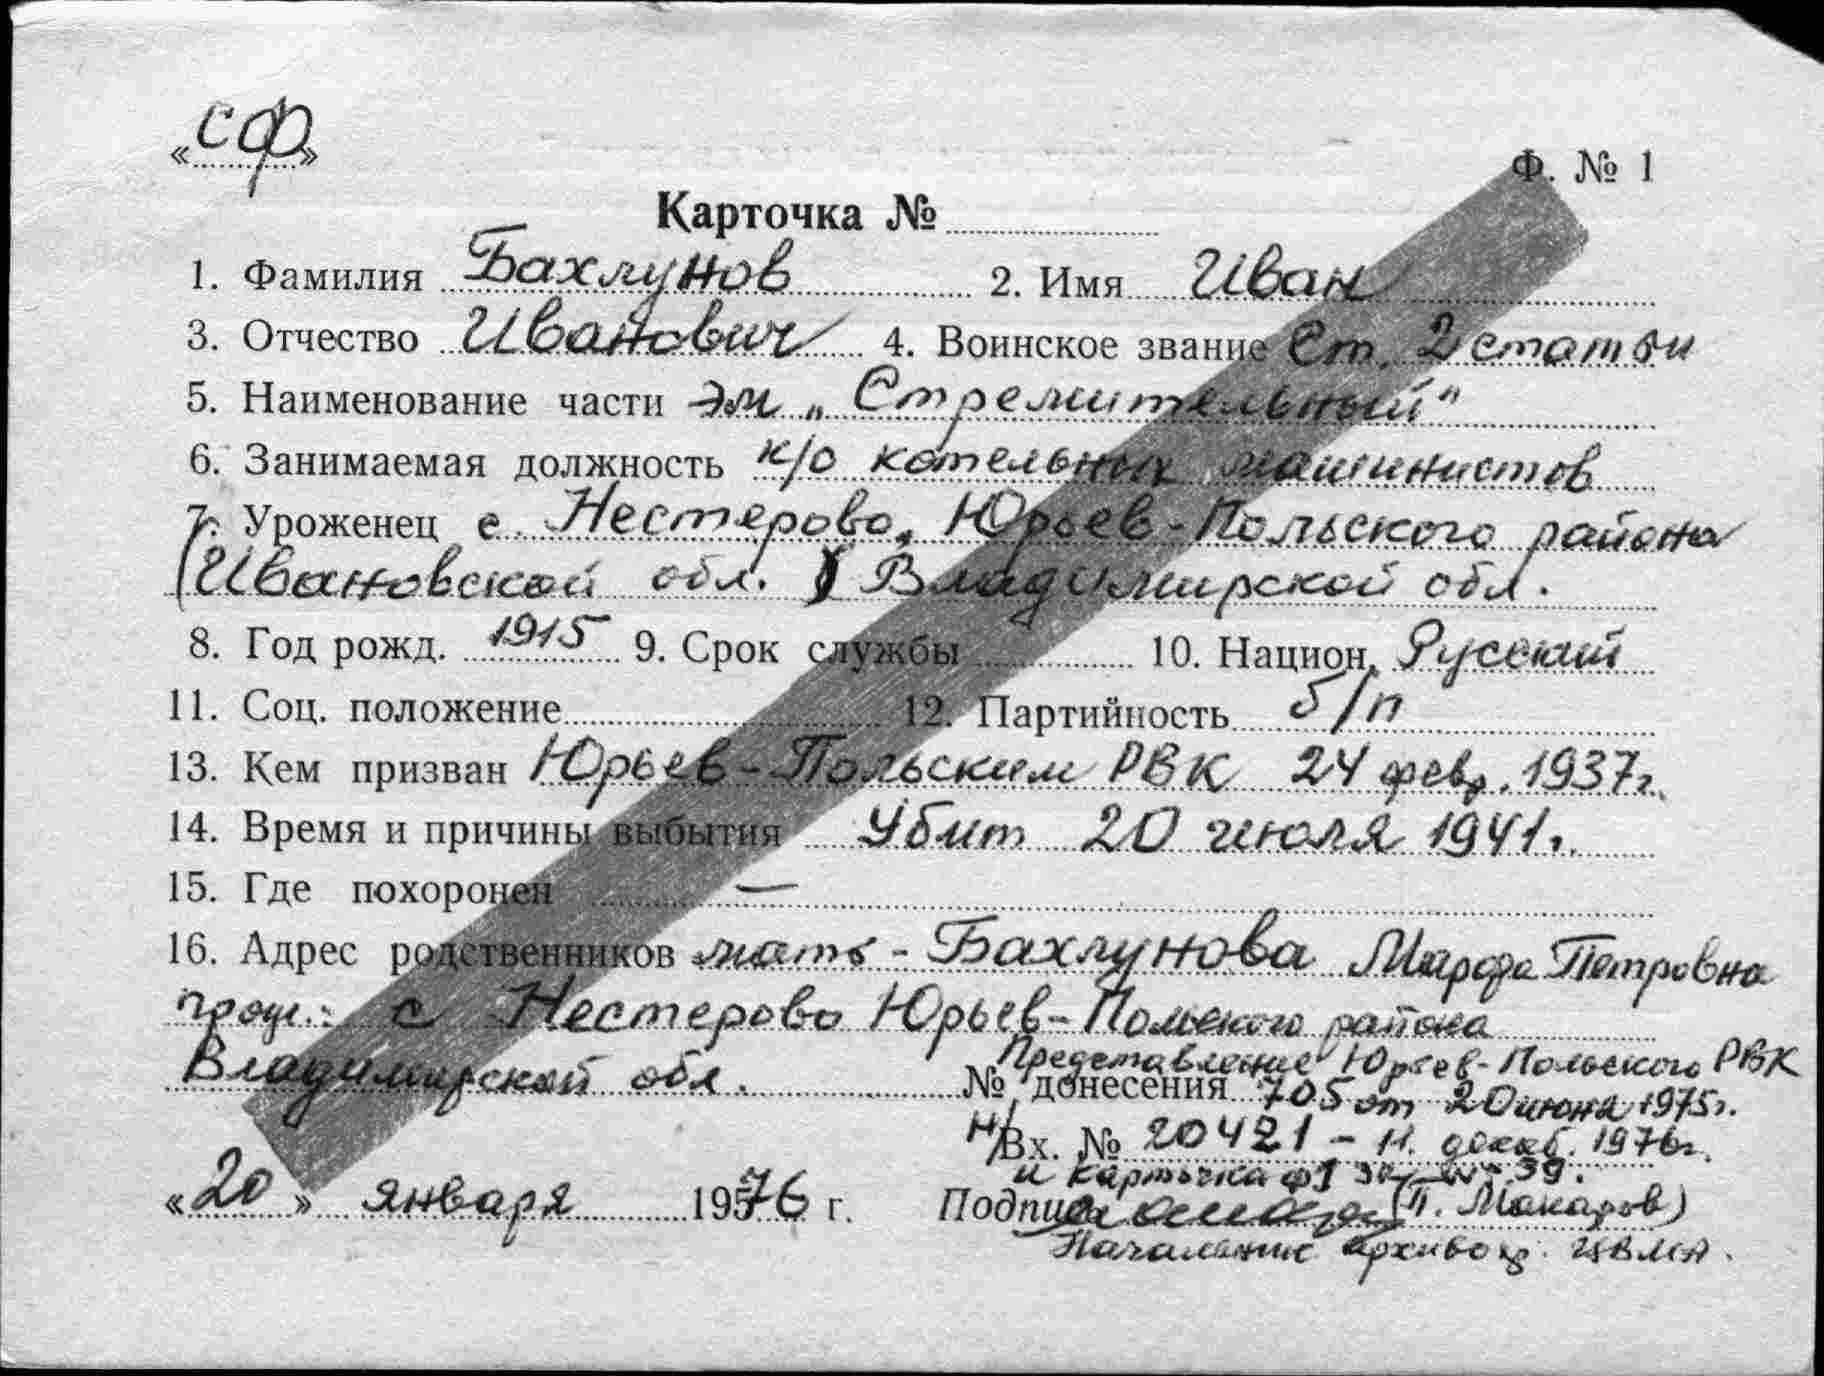 «СФ»
Ф. № 1
Карточка №
1. Фамилия Бахлунов 2. Имя Иван
3. Отчество Иванович 4. Воинское звание Ст. 2 статьи
5. Наименование части эм „Стремительный"
6. Занимаемая должность к/о котельных машинистов
7. Уроженец с. Нестерово, Юрьев-Польского района
(Ивановской обл.) Владимирской обл.
8. Год рожд. 1915 9. Срок службы 10. Национ. Русский
11. Соц. положение 12. Партийность б/п
13. Кем призван Юрьев-Польским РВК 24 февр. 1937г.
14. Время и причины выбытия Убит 20 июля 1941г.
15. Где похоронен —
16. Адрес родственников мать - Бахлунова Марфа Петровна
прож.: с Нестерово Юрьев-Польского района
Владимирской обл.
Представление Юрьев-Польского РВК
№ донесения 705 от 20 июня 1975г.
Н/Вх. № 20421 - 11. декаб. 1976г.
и карточка ф1 39.
«20» января 1976 г. Подпись (П. Макаров)
Начальник архива ЦВМА.